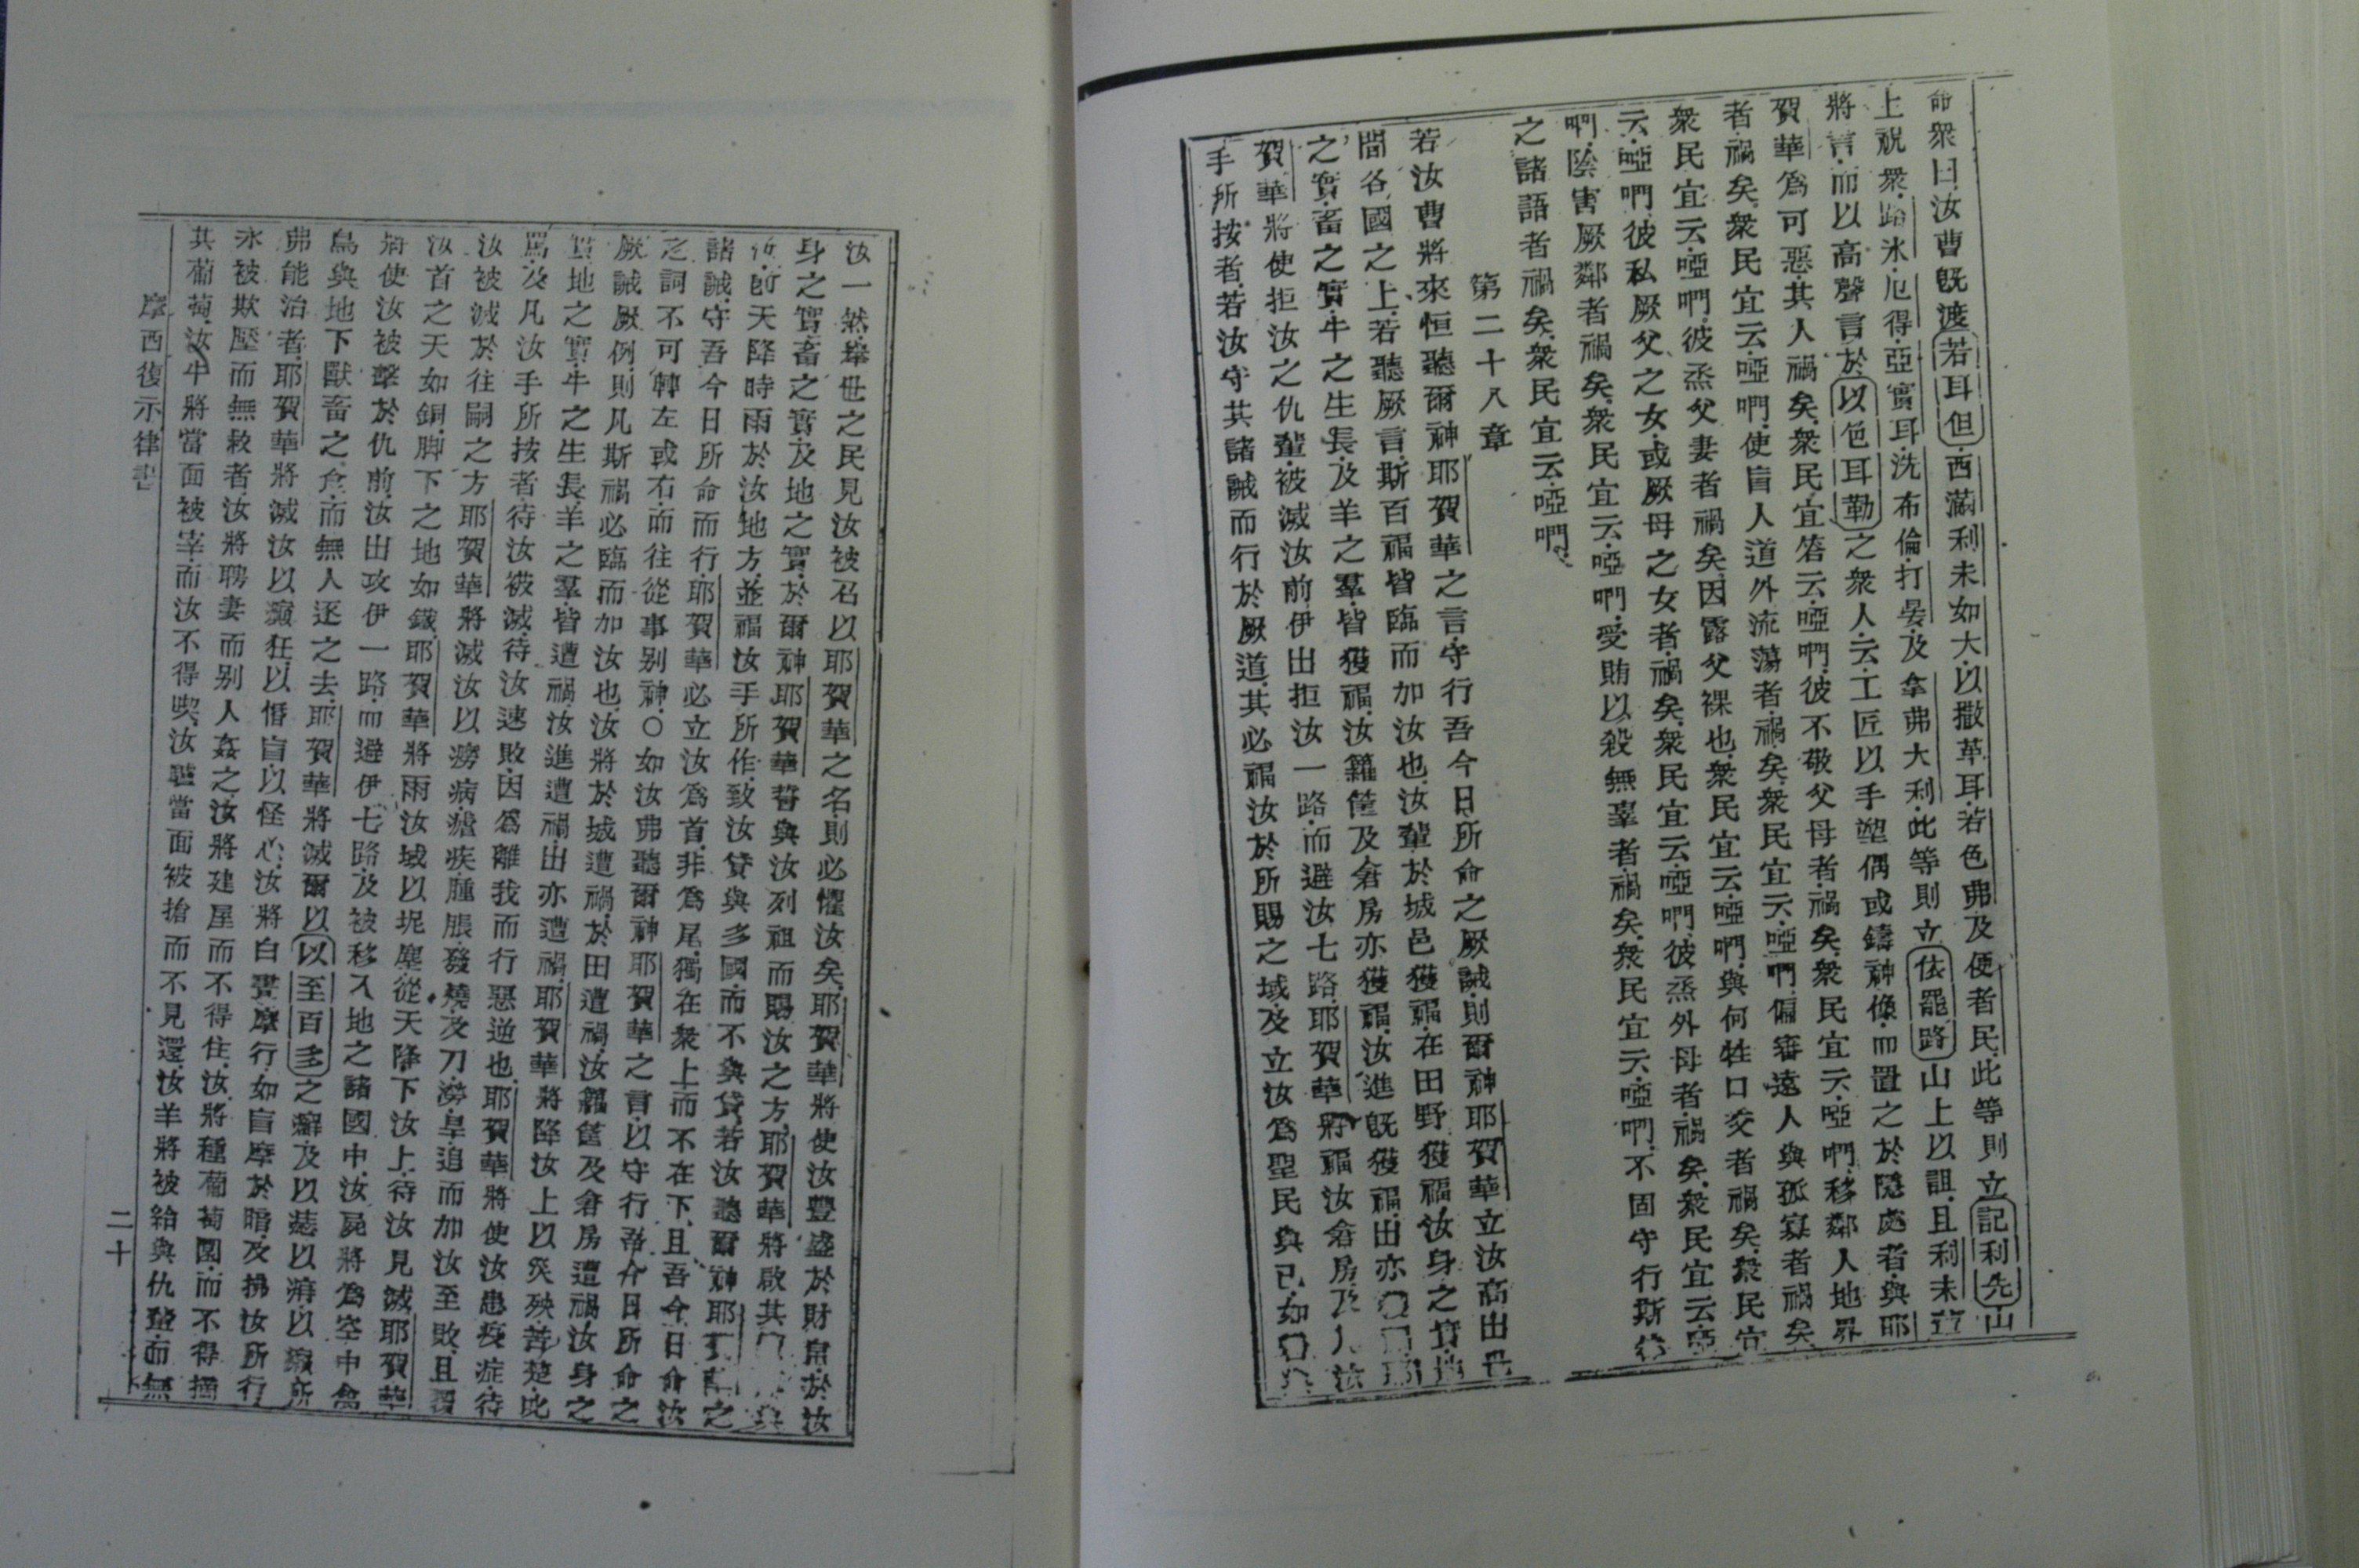 命衆曰汝曹旣渡若耳但西滿利未如大以撒革耳若色弗及便者民此等則立記利先山
上祝衆路氷厄得亞實耳洗布倫打晏及拿弗大利此等則立依罷路山上以詛且利未
將言而以高聲言於以色耳勒之衆人云工匠以手塑偶或鑄神像而置之於隱處者與耶
賀華爲可惡其人禍矣衆民宜答云啞們彼不敬父母者禍矣衆民宜云啞們移鄰人地界
者禍矣衆民宜云啞們使盲人道外流蕩者禍矣衆民宜云啞們偏審遠人與孤寡者禍矣
衆民宜云啞們彼烝父妻者禍矣因露父裸也衆民宜云啞們與何牲口交者禍矣衆民宜
云啞們彼私厥父之女或厥母之女者禍矣衆民宜云啞們彼烝外母者禍矣衆民宜云啞
們陰害厥鄰者禍矣衆民宜云啞們受賄以殺無辜者禍矣衆民宜云啞們不固守行斯律
之諸語者禍矣衆民宜云啞們
第二十八章
若汝曹將來恒聽爾神耶賀華之言守行吾今日所命之厥誡則爾神耶賀華立汝高出
間各國之上若聽厥言斯百福皆臨而加汝也汝輩於城邑獲福在田野獲福汝身之
之實畜之實牛之生長及羊之羣皆獲福汝籮筐及倉房亦獲福汝進旣獲福出亦
賀華將使拒汝之仇輩被滅汝前伊出拒汝一路而避汝七路耶賀華將福汝倉房及
手所按者若汝守其諸誡而行於厥道其必福汝於所賜之域及立汝爲聖民與已如
汝一然舉世之民見汝被名以耶賀華之名則必懼汝矣耶賀華將使汝豐盛於財帛於汝
身之實畜之實及地之實於爾神耶賀華誓與汝列祖而賜汝之方耶賀華將啟其
前天降時雨於汝地方並福汝手所作致汝貸與多國而不與貸若汝聽爾神耶 之
諸誡守吾今日所命而行耶賀華必立汝爲首非爲尾獨在衆上而不在下且吾今日命汝
之詞不可轉左或右而往從事别神〇如汝弗聽爾神耶賀華之言以守行吾今日所命之
厥誡厥例則凡斯禍必臨而加汝也汝將於城遭禍於田遭禍汝籮筐及倉房遭禍汝身之
實地之實牛之生長羊之羣皆遭禍汝進遭禍出亦遭禍耶賀華將降汝上以災殃苦楚此
罵及凡汝手所按者待汝被滅待汝速敗因爲離我而行惡逆也耶賀華將使汝患疫症待
汝被滅於往嗣之方耶賀華將滅汝以癆病瘧疾腫脹發燒及刀澇旱追而加汝至敗且覆
汝首之天如銅脚下之地如鐵耶賀華將雨汝域以坭塵從天降下汝上待汝見滅耶賀華
將使汝被擊於仇前汝出攻伊一路而避伊七路及被移入地之諸國中汝屍將爲空中禽
鳥與地下獸畜之食而無人逐之去耶賀華將滅爾以以至百多之癬及以痣以痳以癩所
弗能治者耶賀華將滅汝以癲狂以惛盲以怪心汝將白晝摩行如盲摩於暗及拂汝所行
永被欺壓而無救者汝將聘妻而别人姦之汝將建屋而不得住汝將種葡萄園而不得摘
其葡萄汝牛將當面被宰而汝不得喫汝驢當面被搶而不見還汝羊將被給與仇輩而無
摩西復示律書
二十